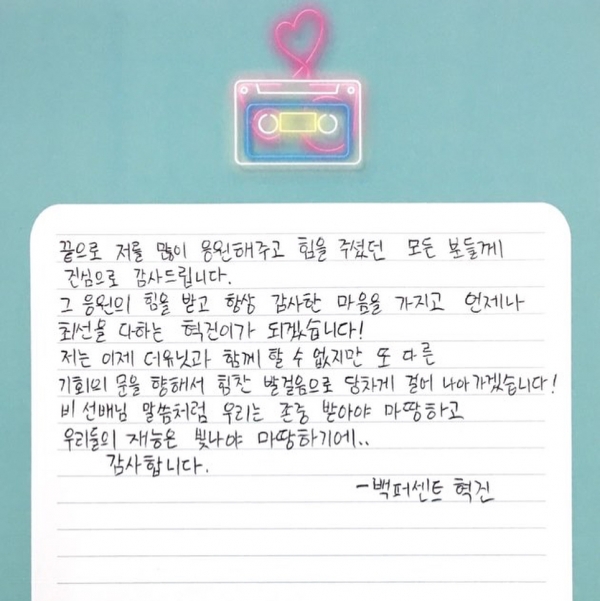 끝으로 저를 많이 응원해주고 힘을 주셨던 모든 분들께
진심으로 감사드립니다.
그 응원의 힘을 받고 항상 감사한 마음을 가지고 언제나
최선을 다하는 혁진이가 되겠습니다!
저는 이제 더유닛과 함께 할 수 없지만 또 다른
기회의 문을 향해서 힘찬 발걸음으로 당차게 걸어 나아가겠습니다!
비 선배님 말씀처럼 우리는 존중 받아야 마땅하고
우리들의 재능은 빛나야 마땅하기에..
감사합니다.
-백퍼센트 혁진